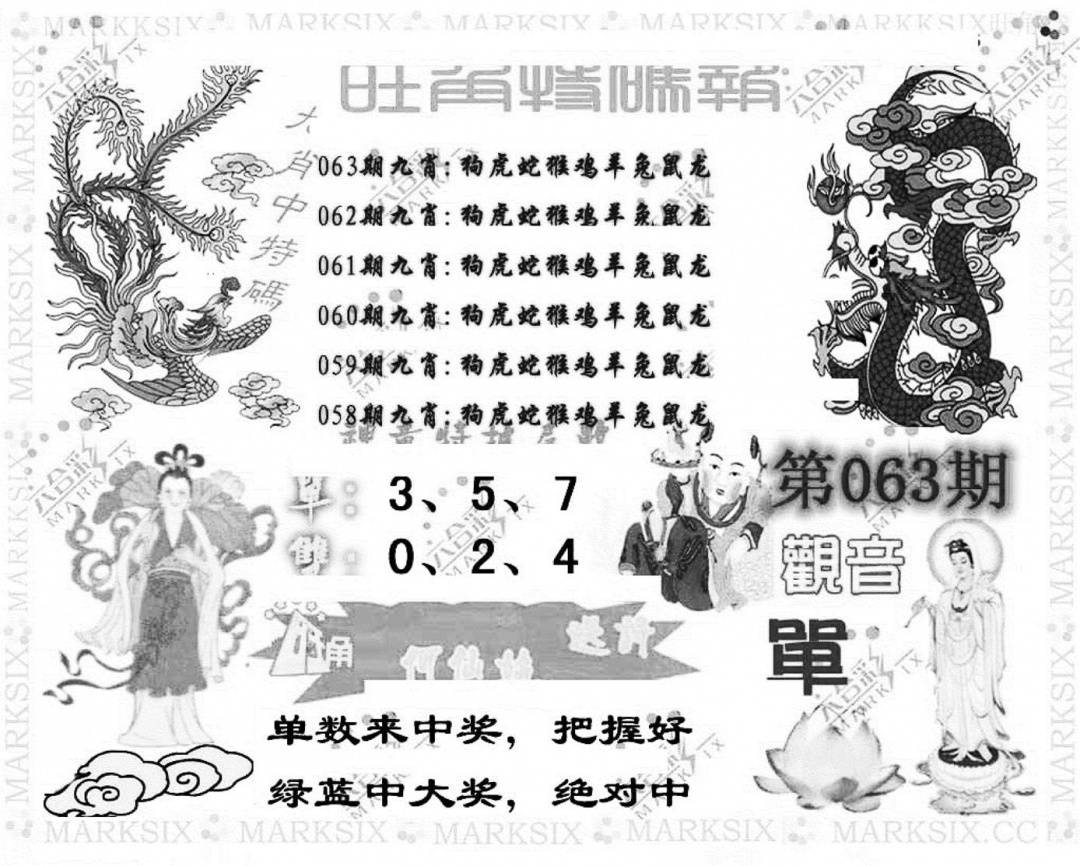 MARKSIX MARKSIX MARKSIX MARKSIX MARKKSIX
旺角特碼報
六肖中特碼
063期九肖:狗虎蛇猴鸡羊兔鼠龙
062期九肖:狗虎蛇猴鸡羊兔鼠龙
061期九肖:狗虎蛇猴鸡羊兔鼠龙
060期九肖:狗虎蛇猴鸡羊兔鼠龙
059期九肖:狗虎蛇猴鸡羊兔鼠龙
058期九肖:狗虎蛇猴鸡羊兔鼠龙
單: 3、5、7
雙: 0、2、4
第063期
觀音
單
何仙姑
单数来中奖，把握好
绿蓝中大奖，绝对中
MARKSIX MARKSIX MARKSIX MARKSIX MARKSIX.CC